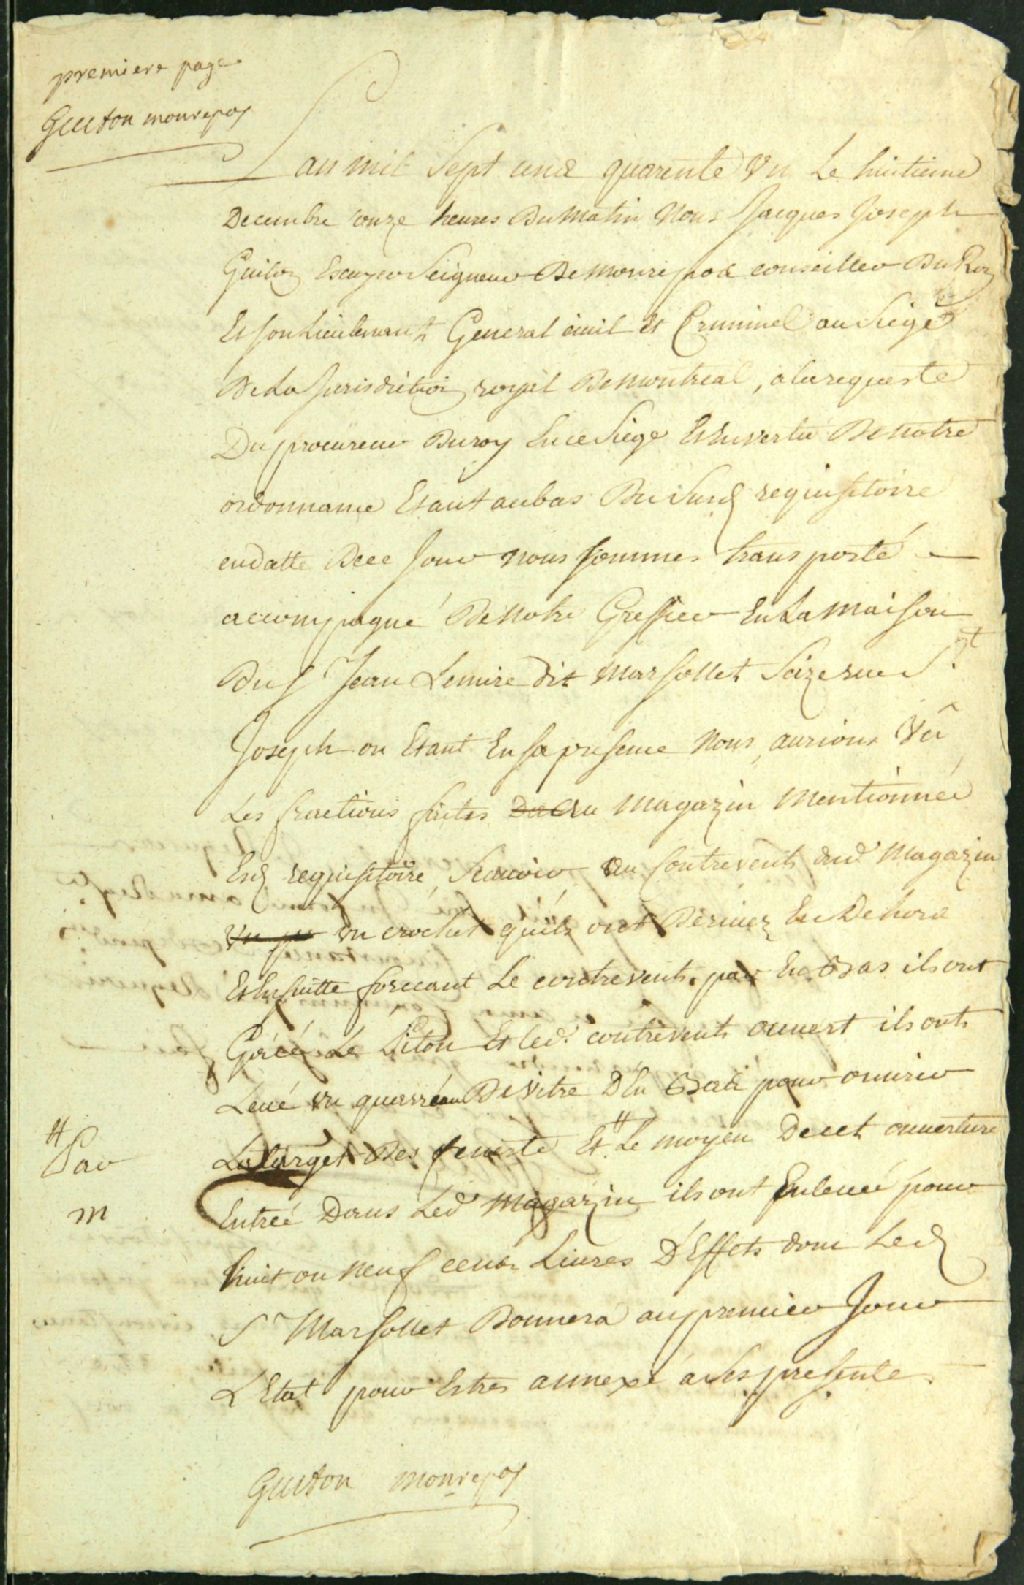 premiere page
Guiton monrepos
Lan mil sept cens quarente un le huitieme
Decembre onze heures Du Matin Nous Jacques Joseph
Guiton Escuyer Seigneur De Monrepos conseiller Du Roy
Et son Lieutenant General civil et Criminel au Siege
De La Jurisdiction royal De Montreal, a la requeste
Du procureur Du roy En ce Siege En vertu De Notre
ordonnance Etant au bas Du Susd requisitoire
en datte De ce Jour nous sommes transporté
accompagné De Notre Greffier En La Maison
Du Sr Jean Lemire dit Marsollet Size rue St
Joseph ou Etant En sa presence Nous, aurions Vû
Les fractions faites au Magazin Mentionnée
Esd requisitoire, Scavoir Au contrevent dud Magazin
un crochet quils ont Deriuez En Dehors
Et Ensuitte forccant Le contrevent par En Bas ils ont
Le Piton Et led. contrevent ouvert ils ont
Levé un quarréau De Vitre D'En Bas pour ouvrir
La target Des fenestre Et # Le moyen De cet ouverture
# Par
m
Entreé Dans Led Magazin ils ont Enleveé pour
huit ou Neuf cens Livres D'Effets dont Led
Sr Marsollet Donnera au premier Jour
L'Etat pour Estres annexé a Ses presente.
Guiton monrepos